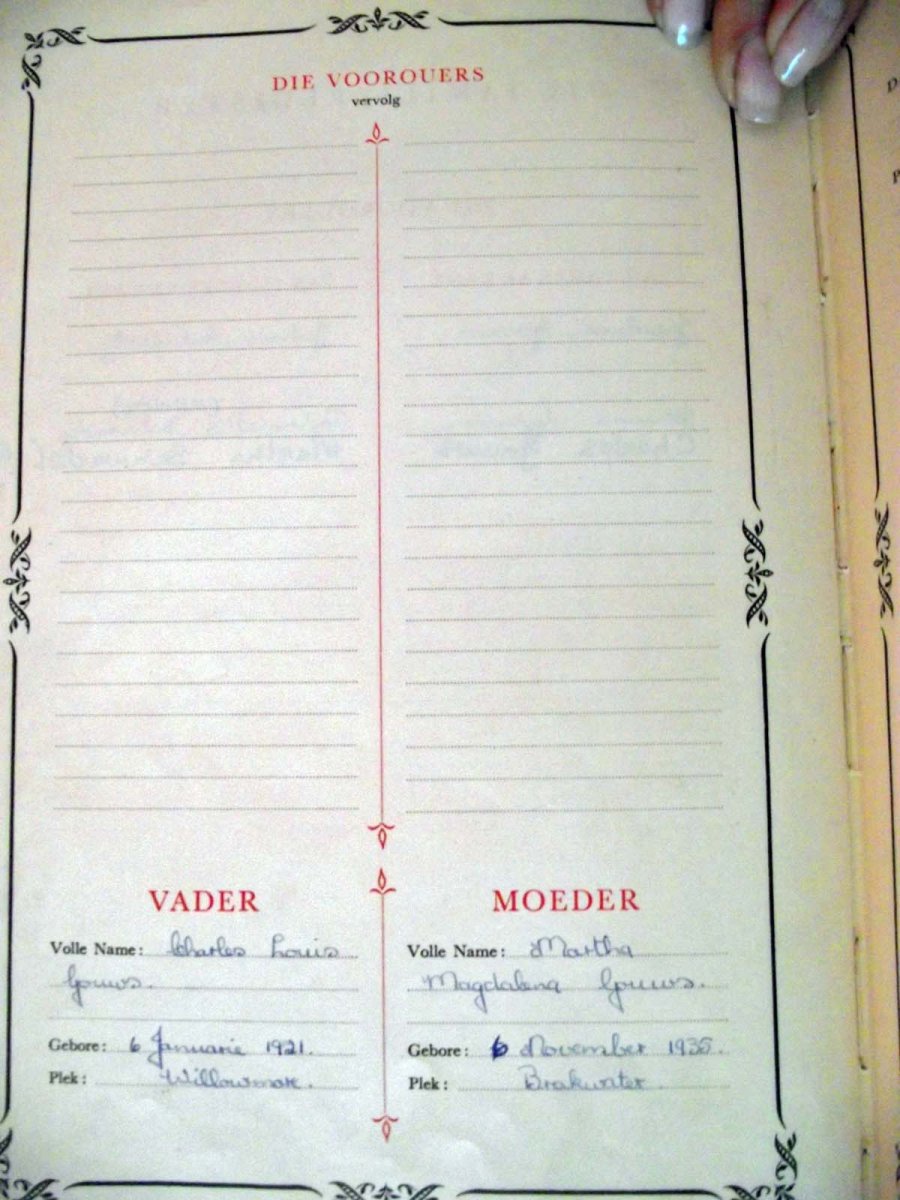 DIE VOOROUERS
vervolg
VADER
Volle Name: Charles Louis
Gouws.
Gebore: 6 Januarie 1921.
Plek: Willowmore.
MOEDER
Volle Name: Martha
Magdalena Gouws.
Gebore: 6 November 1935.
Plek: Brakwater.